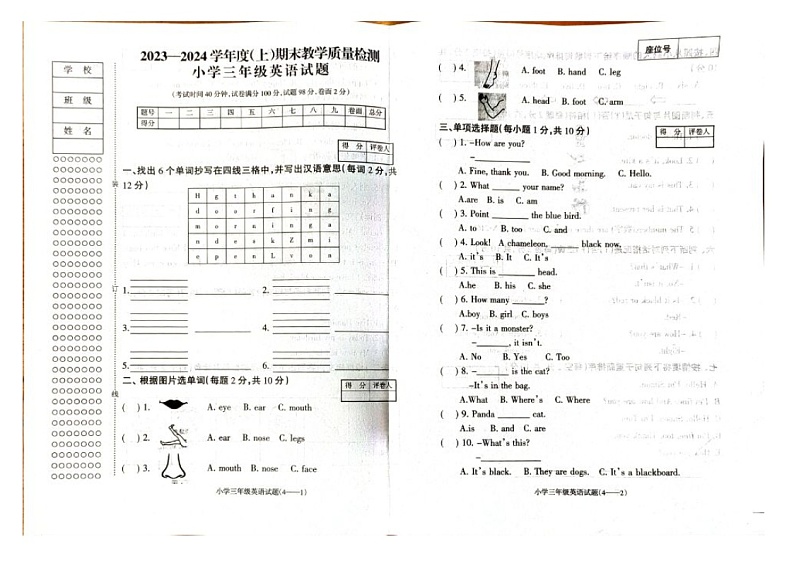 学 校
班 级
姓 名
装
订
线
2023—2024 学年度(上)期末教学质量检测
小学三年级英语试题
(考试时间 40 分钟,试卷满分 100 分,试题 98 分,卷面 2 分)
题号 一 二 三 四 五 六 七 八 九 卷面 总分
得分
得 分 评卷人
一、找出 6 个单词抄写在四线三格中,并写出汉语意思(每词 2 分,共
12 分)
H g t h a n k a
d o o r f i n g
m o r n i n g a
n d e s k Z m i
G F a c e L v o n
1.
2.
3.
4.
5.
6.
二、根据图片选单词(每题 2 分,共 10 分)
得 分 评卷人
( ) 1. A. eye B. ear C. mouth
( ) 2. A. ear B. nose C. legs
( ) 3. A. mouth B. nose C. face
小学三年级英语试题(4——1)
座位号
( ) 4. A. foot B. hand C. leg
( ) 5. A. head B. foot C. arm
三、单项选择题(每小题 1 分,共 10 分)
得 分 评卷人
( ) 1. –How are you?
–
A. Fine, thank you. B. Good morning. C. Hello.
( ) 2. What ______ your name?
A.are B. is C. am
( ) 3. Point ________ the blue bird.
A. to B. too C. and
( ) 4. Look! A chameleon, ______ black now.
A. it's B. It C. It's
( ) 5. This is ________ head.
A.he B. his C. she
( ) 6. How many _______?
A.boy B. girl C. boys
( ) 7. –Is it a monster?
–_______, it isn't.
A. No B. Yes C. Too
( ) 8. –_______ is the cat?
–It's in the bag.
A.What B. Where's C. Where
( ) 9. Panda _______ cat.
A.is B. and C. are
( ) 10. –What's this?
–______________
A. It's black. B. They are dogs. C. It's a blackboard.
小学三年级英语试题(4——2)